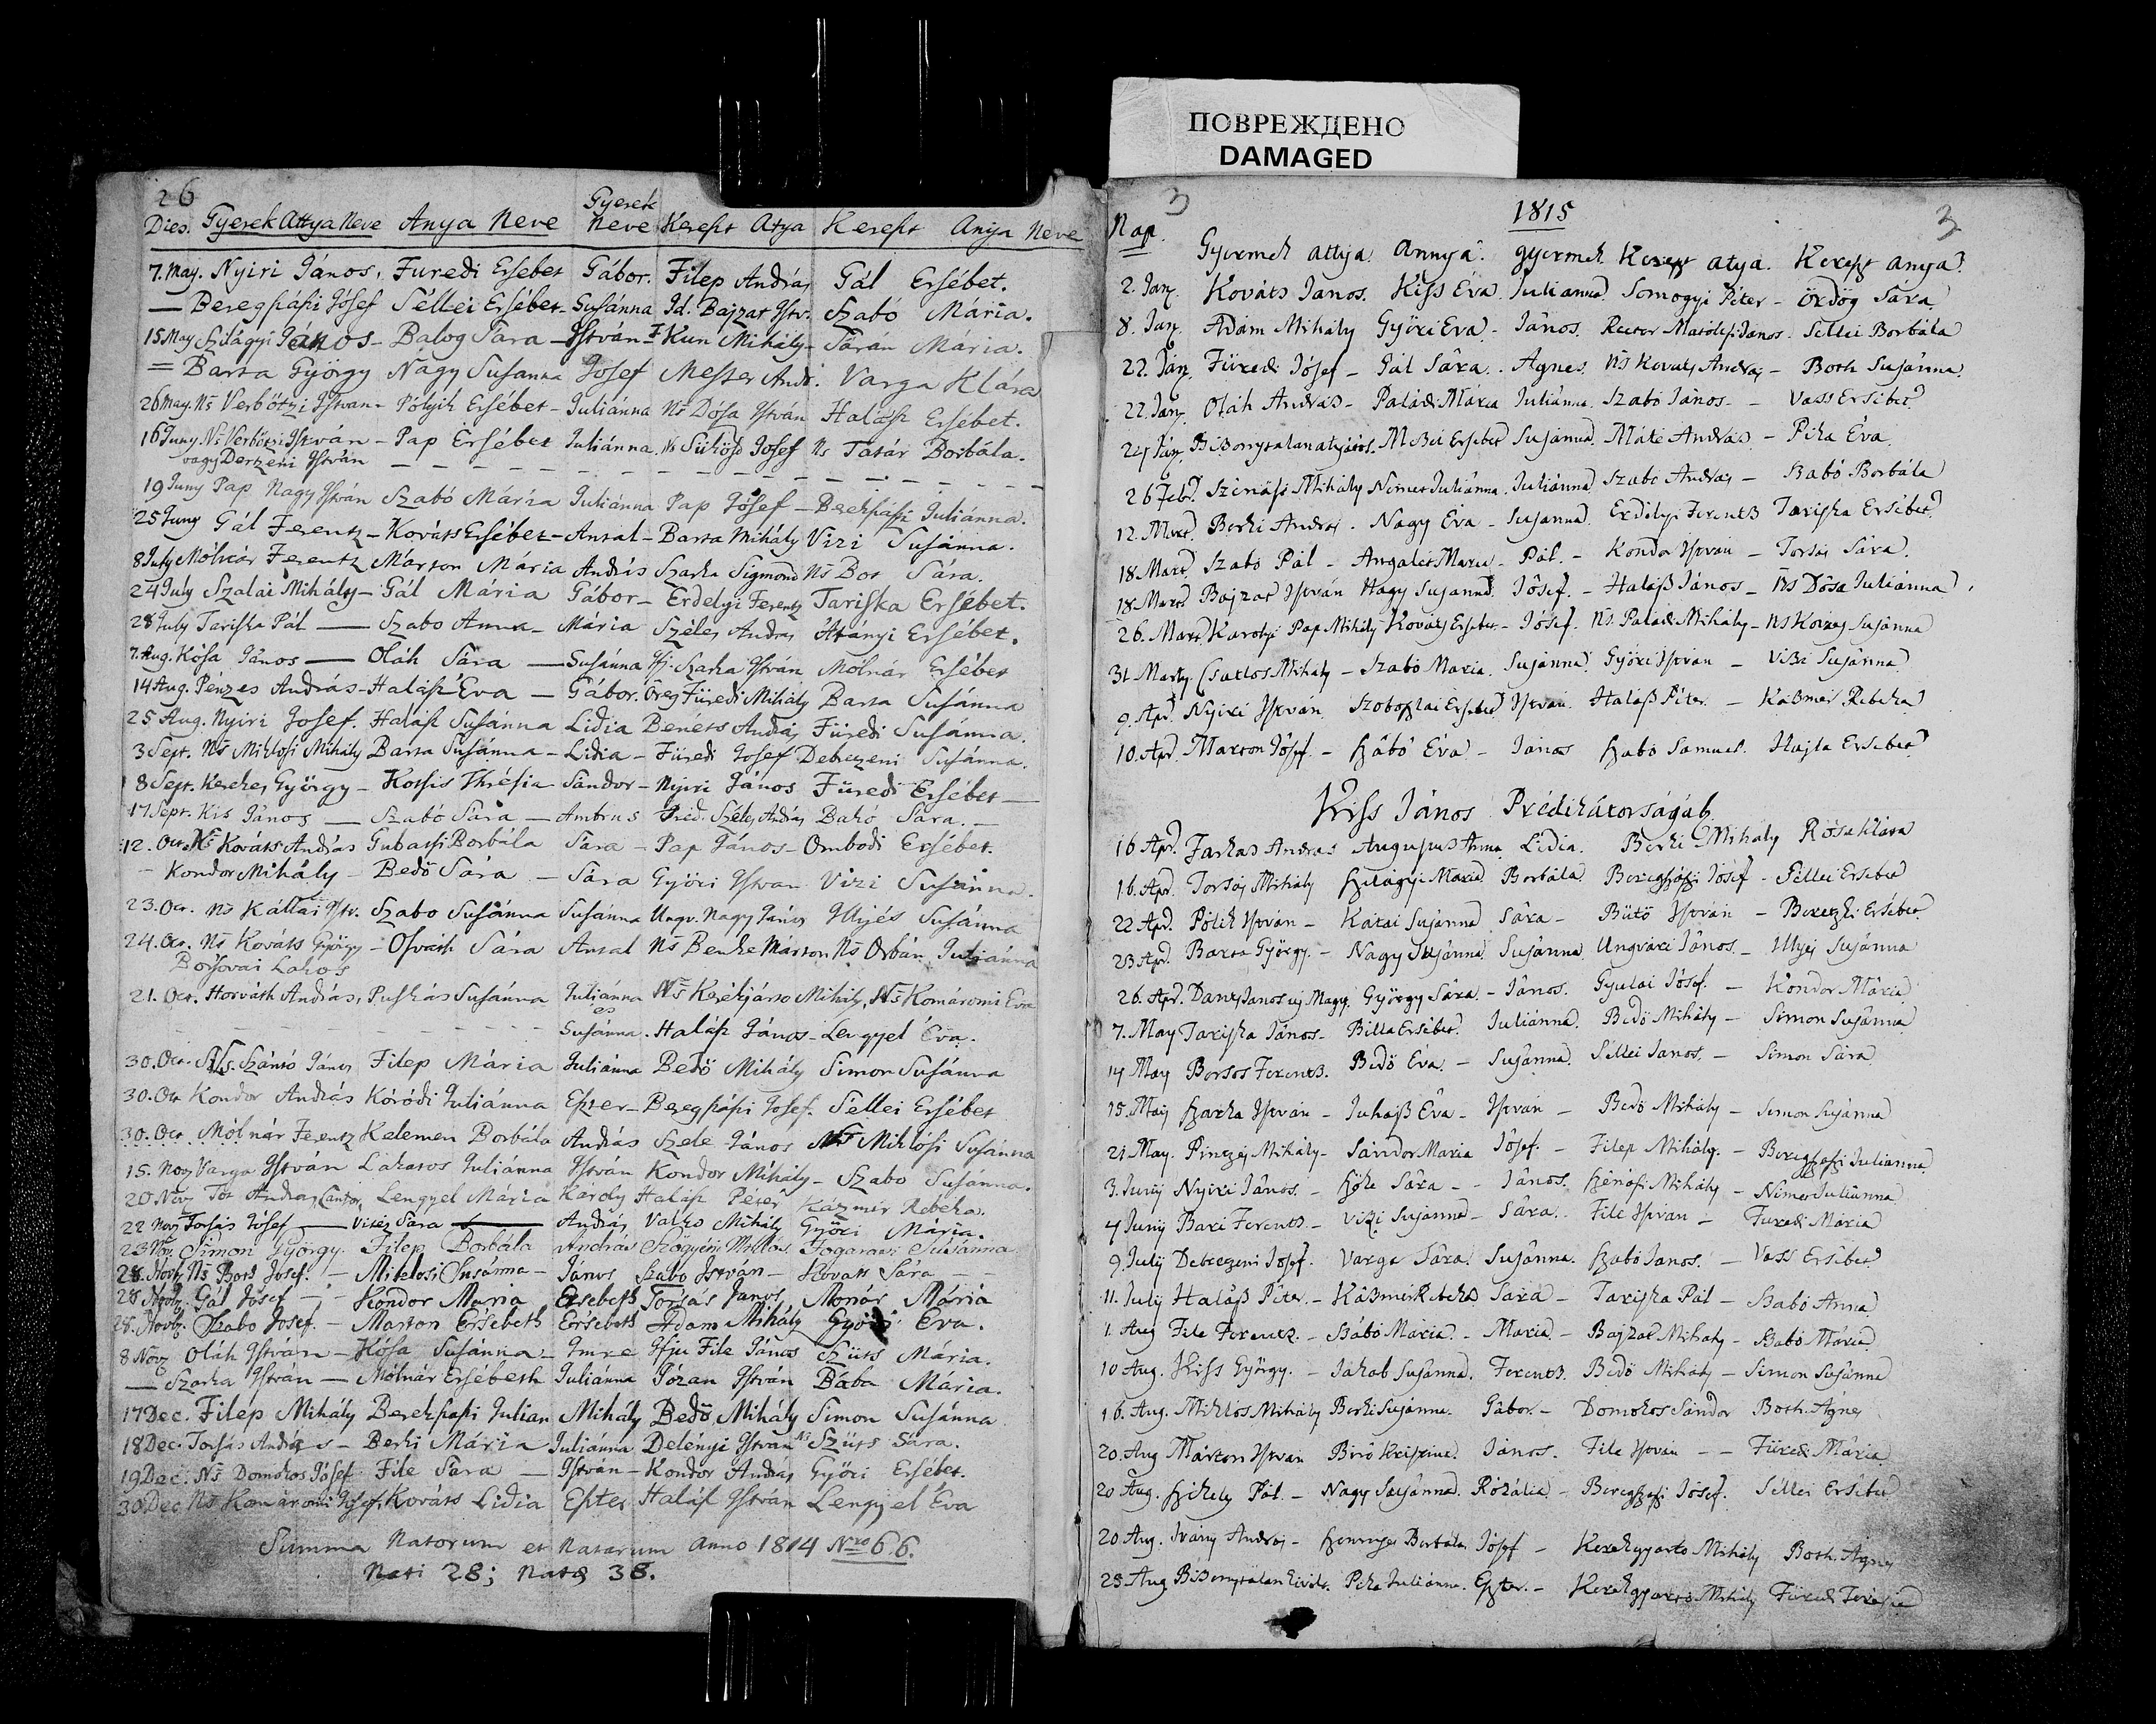 ПОВРЕЖДЕНО
DAMAGED
26
Dies. Gyerek Attya Neve Anya Neve Gyerek Neve Kereszt Atya Kereszt Anya Neve
7. May. Nyiri János, Furedi Ersebet Gábor. Filep András Gál Ersébet.
— Beregszászi Jósef Séllei Ersébet – Susánna Id. Bajzat Istv. Szabó Mária.
15 May Szilágyi János – Balog Sara – István Kun Mihály – Mária.
= Barta György Nagy Susanna Josef Messer Andr. Varga Klára
26 May. Ns Verbőtzi Istvan – Ersébet – Juliánna Ns Dósa István Halász Ersébet.
16 Juny. Ns Verbőtzi István – Pap Ersébet Juliánna. Ns Sükösd Josef Ns Tatár Borbála.
vagy Derzeni István
19 Juny Pap Nagy István Szabó Mária Juliánna Pap Jósef – Juliánna.
25 Juny Gál Ferentz – Kováts Ersébet – Antal – Barta Mihály Vizi Susánna.
8 July Mólnár Ferentz Márton Mária András Szarka Sigmond Ns Bot Sára.
24 July Szalai Mihály – Gál Mária Gábor – Erdelyi Ferentz Tariska Ersébet.
28 July Tariska Pál — Szabo Anna – Mária Széles Andras Átányi Ersébet.
7. Aug. Kósa János — Oláh Sára — Susánna Ifj. Szarka István Mólnár Ersébet
14 Aug. Pénzes András – Halász Eva — Gábor. Öreg Füredi Mihály Barta Susánna
25 Aug. Nyiri Josef. Halász Susánna Lidia Benéts András Füredi Susánna.
3 Sept. Ns Miklosi Mihály Barta Susánna – Lidia – Füredi Josef Debretzeni Susánna.
18 Sept. Kerekes György – Kotsis Thrésia – Sándor – Nyiri János Füredi Ersébet —
17 Sept. Kis János — Szabó Sára — Ambrus Széles András Bakó Sára. —
12. Oct. Ns Kováts András Gubatsi Borbála Sára – Pap János – Ombodi Ersébet.
– Kondor Mihály – Bedő Sára – Sára Györi Istvan Vizi Susánna.
23. Oct. Ns Kállai Istv. Szabo Susánna Susánna Ungv. Nagy János Illyés Susánna
24. Oct. Ns Kováts György – Osváth Sára Antal Ns Benke Márton Ns Orbán Juliánna
Borsovai Lakos
21. Oct. Horváth András, Puskás Susánna Juliánna Ns Kerékjártó Mihály, Ns Komaromi Eva
és
Susánna. Halász János – Lengyel Éva.
30. Oct. Ns. Szántó János Filep Mária Juliánna Bedő Mihály Simon Susánna
30. Oct Kondor András Kóródi Juliánna Eszter – Beregszászi Josef. Séllei Ersébet
30. Oct. Mólnár Ferentz Kelemen Borbála András Szele János Ns Miklósi Susánna
15. Nov Varga István Lakatos Juliánna István Kondor Mihály – Szabo Susánna.
20 Nov Tót András Cantor, Lengyel Mária Károly Halász Péter Kázmér Rebeka.
22 Nov Torsás Jósef — Vitéz Sára — András Valko Mihály Győri Mária.
23 Nov. Simon György. Filep Borbála András Szögyéni Miklós Fogarassi Susánna
28. Novb Ns Josef. – Miklosi Susánna – János Szabo István – Kovats Sára —
28 Novb. Gál Jósef – – Kondor Maria Ersebeth Torsás János Mária
28. Novb. Szabo Josef. – Marton Ersébeth Ersébeth Adam Mihály Győri Eva.
8 Nov Oláh István – Kósa Susánna – Imre Ifju File János Szüts Mária.
— Szarka István — Mólnár Ersébeth Juliánna Józan István Bába Mária.
17 Dec. Filep Mihály Berekszaszi Julian Mihály Bedő Mihály Simon Susánna
18 Dec. Torsás András – Berki Mária Juliánna Delényi István Ns Szüts Sára.
19 Dec. Ns Domokos Jósef File Sara — István – Kondor András Győri Ersébet.
30 Dec Ns Komáromi Josef, Kováts Lidia Eszter Halász István Lengyel Éva
Summa Natorum et Natarum Anno 1814 Nro 66.
Nati 28; Natæ 38.
3
1815
3
Nap.
Gyermek attya Annya. gyermek Kereszt atya. Kereszt anya.
2. Jan. Kováts Janos. Kiss Éva. Julianna Somogyi Péter – Ördög Sára
8. Jan. Adam Mihály Győri Eva – János. Rector Matolcsi Janos – Séllei Borbála
22. Jan. Füredi Jósef – Gál Sára. Agnes. Ns Kovats Andras – Both Susánna
22. Jan. Oláh András – Paládi Mária Juliánna. Szabó János. – Vass Ersébet
24 Jan. Ersebet Susánna. Máté András – Pika Éva
26 Febr. Szénáss Mihály Németh Juliánna. Juliánna Szabo András – Szabó Borbála
12. Mart. Berki Andras. Nagy Eva – Susanna. Erdélyi Ferentz Tariska Ersébet
18 Mart. Szabo Pál – Maria – Pál. – Kondor István – Torsás Sára.
18 Mart. Bajzat István Nagy Susanna. Jósef. – Halász János – Ns Dósa Juliánna
26. Mart. Karolyi Pap Mihály Kováts Ersebet – Jósef. Ns. Paládi Mihály – Ns Susánna
31 Marty. Csatlos Mihály – Szabó Maria. Susánna. Győri István – Vizi Susánna
9. Apr. Nyiri István. Szoboszlai Ersebet István. Halász Péter. – Kázmér Rebeka
10. Apr. Marton Jósef. – Szábó Éva – János Szabo Samuel. Hajla Ersebet
Kiss János Prédikátorságáb.
16 Apr. Farkas Andras Anna Lidia. Berki Mihály Rósa Klára
16. Apr. Torsás Mihály Szilágyi Maria Borbála. Beregszászi Jósef – Séllei Ersebet
22 Apr. István – Kátai Susánna Sára – Bütö István – Beretzki Ersébet
23 Apr. Barta György. – Nagy Susánna Susánna Ungvári János. – Illyes Susánna
26. Apr. György Sára. – János. Gyulai Jósef. – Kondor Mária
7. May Tariska János – Billa Ersébet. Juliánna. Bedő Mihály – Simon Susánna
14 May Borsos Ferentz. Bedő Éva. – Susánna. Séllei Janos. – Simon Sára
15. May Szarka István – Juhász Éva – István – Bedő Mihály – Simon Susánna
21 May. Pénzes Mihály – Sándor Maria Jósef. – Filep Mihály. – Beregszászi Julianna
3. Juny Nyiri János. – Szőke Sára – – János. Mihály – Német Juliánna
4 Juny Bari Ferentz. – Vizi Susánna – Sára. File István – Furedi Mária
9. July Debreczeni Josef. Varga Sára. Susánna. Szabó Janos. – Vass Ersébet
11. July Halász Péter. – Kázmér Rebeka Sára – Tariska Pál – Szabó Anna
1. Aug File Ferentz. – Szábó Mária. – Maria. – Bajzat Mihály – Szabó Mária
10 Aug. Kiss György. – Jakab Susánna. Ferentz. Bedő Mihály – Simon Susánna
16. Aug. Miklós Mihály Berki Susánna. Gábor. – Domokos Sándor Both Ágnes
20. Aug Márton István Biró Krisztina. János. File István – – Füredi Mária
20 Aug. Székely Pál. – Nagy Susánna. Rozália – Beregszászi Jósef. Séllei Ersébet
20 Aug. Ivány Andras – Borbála Jósef – Kerekgyarto Mihály Both Agnes
25. Aug Juliánna. Eszter. – Kerekgyartó Mihály Füredi Terésia